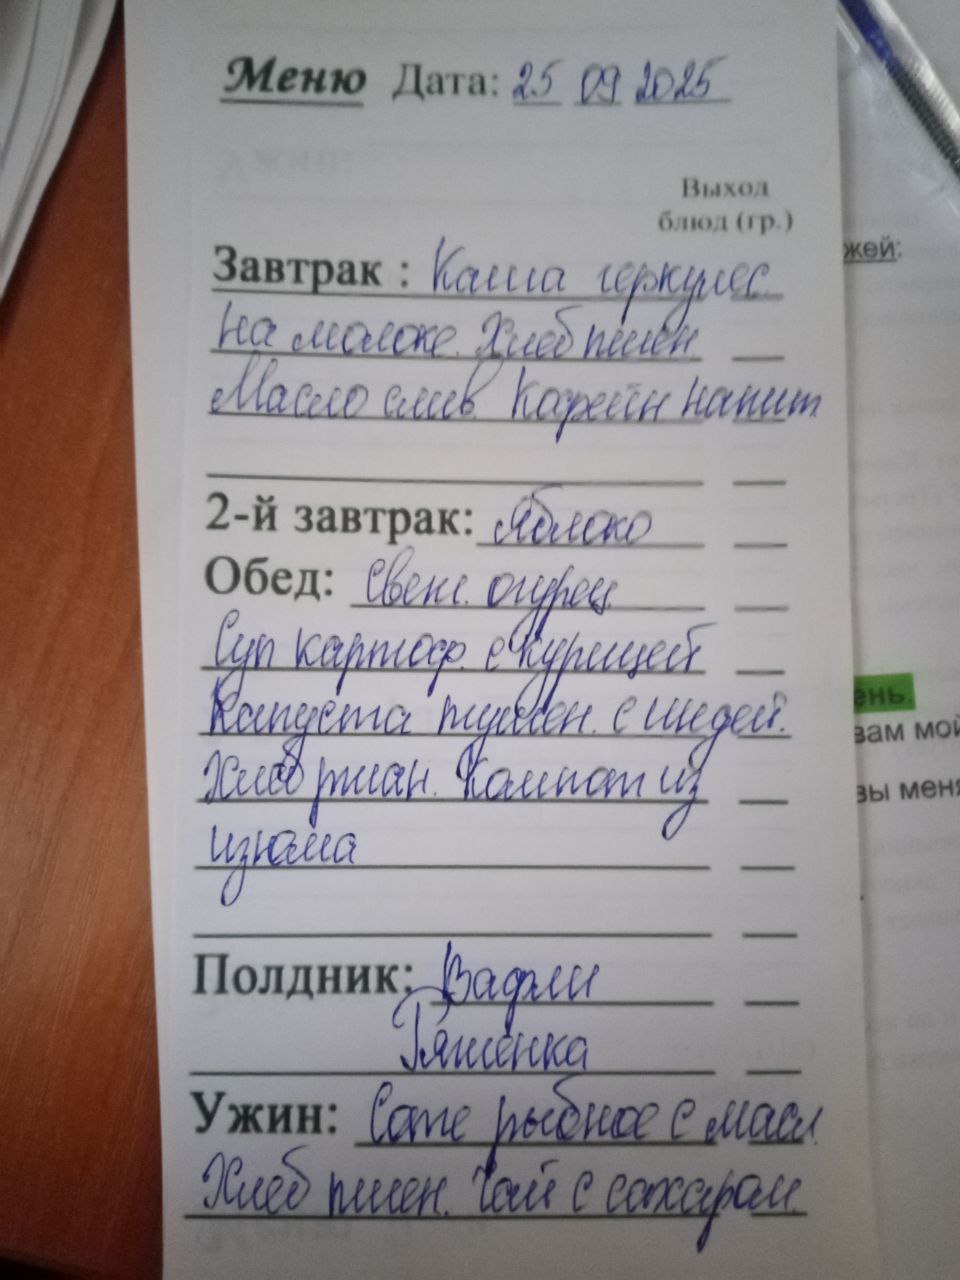 Меню Дата: 25 09 2025
Выход
блюд (гр.)
Завтрак : Каша геркулес.
на молоке. Хлеб пшен.
Масло слив. Кофейн напит
2-й завтрак: Яблоко
Обед: Свеж. огурец
Суп картоф. с курицей
Капуста тушен. с индей.
Хлеб ржан. Компот из
изюма
Полдник: Вафли
Ряженка
Ужин: Соте рыбное с масл.
Хлеб пшен. Чай с сахаром.
жей:
ень.
вам мой
вы меня